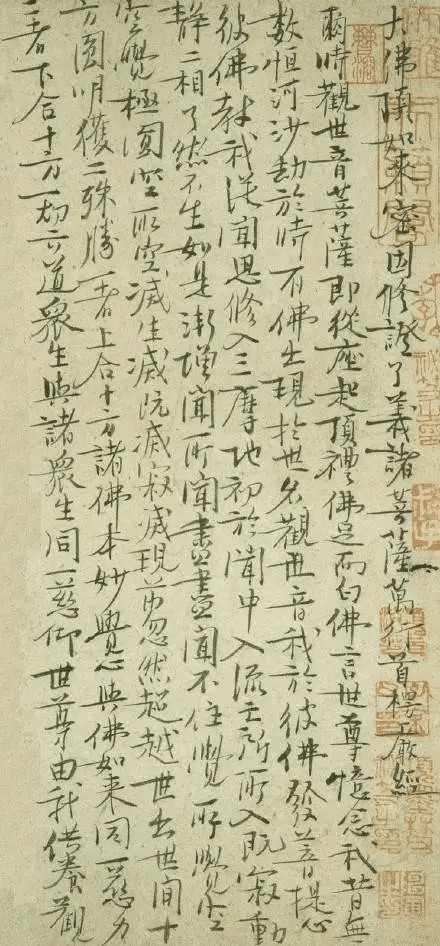 大佛頂如來密因修證了義諸菩薩萬行首楞嚴經
爾時觀世音菩薩即從座起頂禮佛足而白佛言世尊憶念我昔無
數恒河沙劫於時有佛出現於世名觀世音我於彼佛發菩提心
彼佛教我從聞思修入三摩地初於聞中入流亡所所入既寂動
靜二相了然不生如是漸增聞所聞盡盡聞不住覺所覺空
空覺極圓空所空滅生滅既滅寂滅現前忽然超越世出世間十
方圓明獲二殊勝一者上合十方諸佛本妙覺心與佛如來同一慈力
二者下合十方一切六道眾生與諸眾生同一慈仰世尊由我供養觀